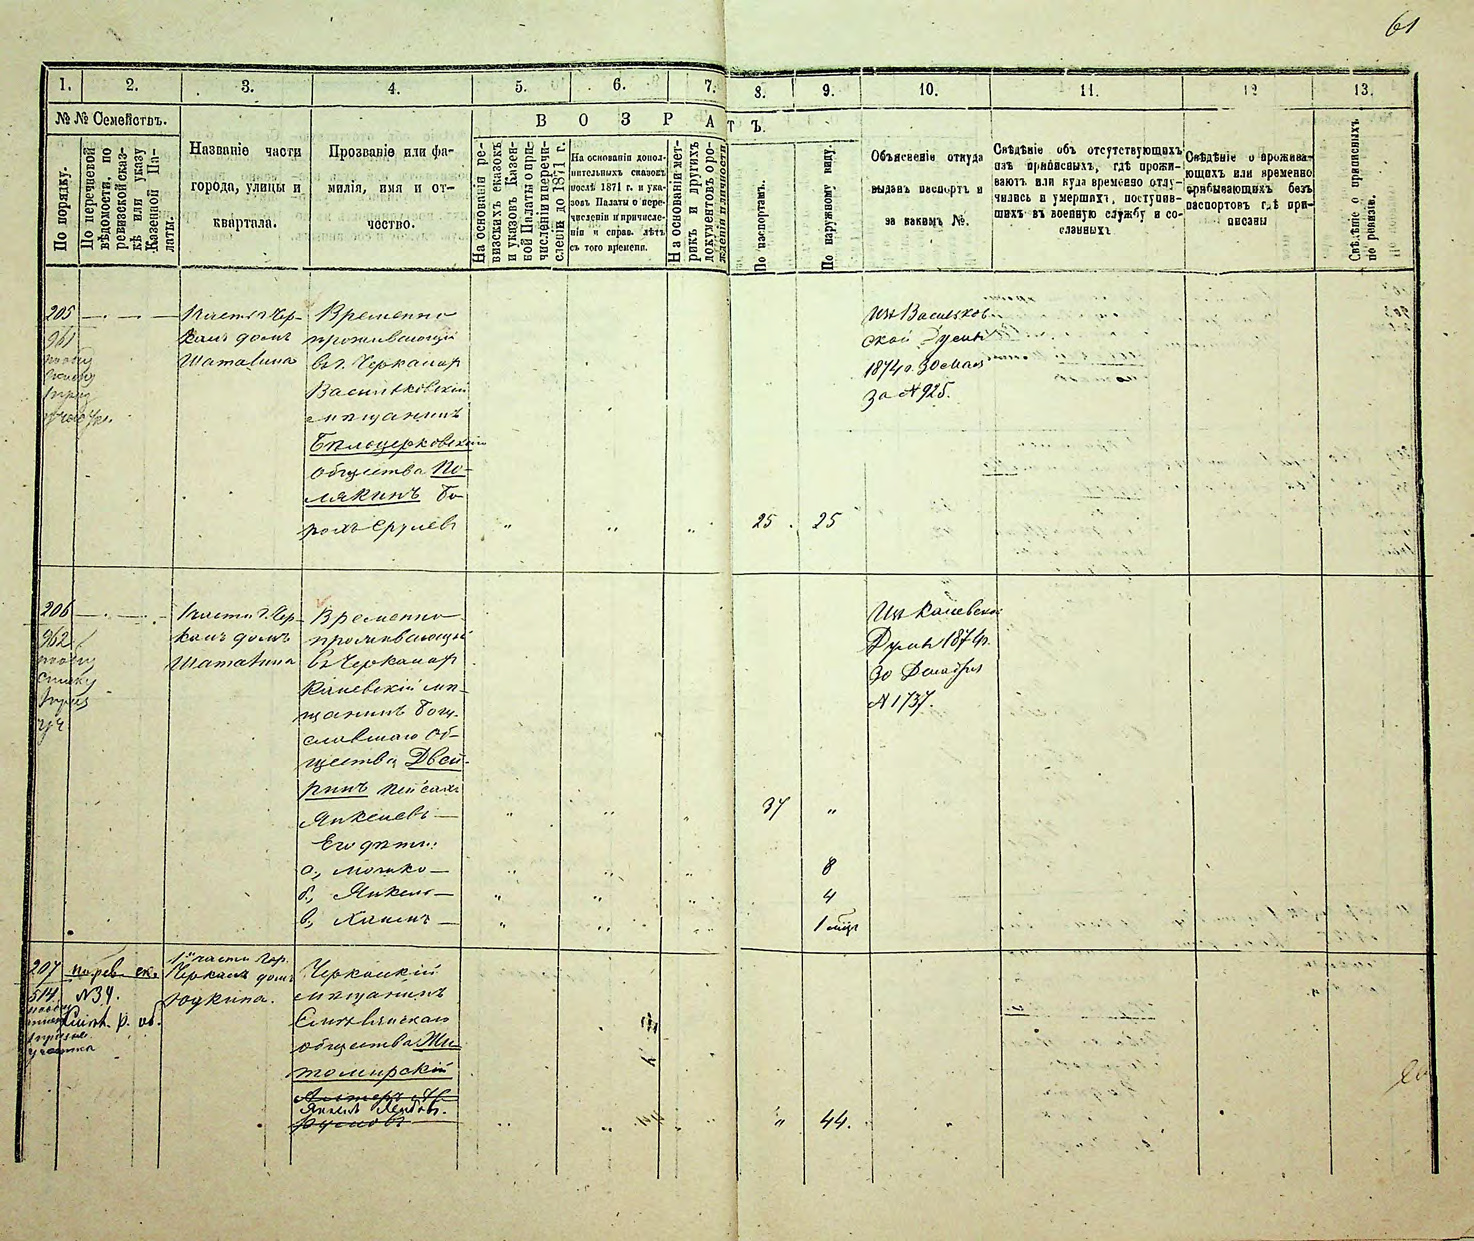 61
1. 2. 3. 4. 5. 6. 7. 8. 9. 10. 11. 12 13.
№ № Семействъ.
По порядку.
По перечневой
вѣдомости, по
ревизской сказ-
кѣ или указу
Казенной Па-
латы.
Названіе части
города, улицы и
квартала.
Прозваніе или фа-
милія, имя и от-
чество.
В О З Р А Т Ъ.
На основаніи ре-
визскихъ сказокъ
и указовъ Казен-
ной Палаты о при-
численіи и перечи-
сленіи до 1871 г.
На основаніи допол-
нительныхъ сказокъ
послѣ 1871 г. и ука-
зовъ Палаты о пере-
численіи и причисле-
ніи и справ. лѣтъ
съ того времени.
На основаніи мет-
рикъ и другихъ
документовъ о ро-
жденіи и личности.
По паспортамъ.
По наружному виду.
Объясненіе откуда
выданъ паспортъ и
за какимъ №.
Свѣдѣніе объ отсутствующихъ
изъ приписныхъ, гдѣ прожи-
ваютъ или куда временно отлу-
чились и умершихъ, поступив-
шихъ въ военную службу и со-
сланныхъ
Свѣдѣніе о прожива-
ющихъ или временно
прибывающихъ безъ
паспортовъ гдѣ при-
писаны
Свѣдѣніе о приписныхъ
по ревизіи.
205 — — —
961
1 части г. Чер-
касъ домъ
Шаталина
Временно
проживающій
въ г. Черкасах
Васильковскій
мѣщанинъ
Бѣлоцерковскаго
общества По-
лякинъ Бо-
рохъ Срулевъ " " " 25 25
Изъ Васильков-
ской Думы
1874 г. 30 Мая
за № 925.
206 — — —
962
1 части г. Чер-
касъ домъ
Шаталина
Временно
проживающій
въ Черкасах
Каневскій мѣ-
щанинъ Богу-
славскаго об-
щества Двей-
ринъ Пейсахъ
Янкелевъ — " " " 37 "
Его дѣти:
а., Мошко — " " " 8
б., Янкель — " " " 4
в., Хаимъ — " " " 1 мѣс
Изъ Каневской
Думы 1874 г.
30 Декабря
№ 1737.
207
514
по рев. ск.
№ 34.
1й части Гор.
Черкасъ домъ
Юдкина.
Черкаскій
мѣщанинъ
общества Жи-
томирскій
Янкель Лейбовъ. " " " " 44.